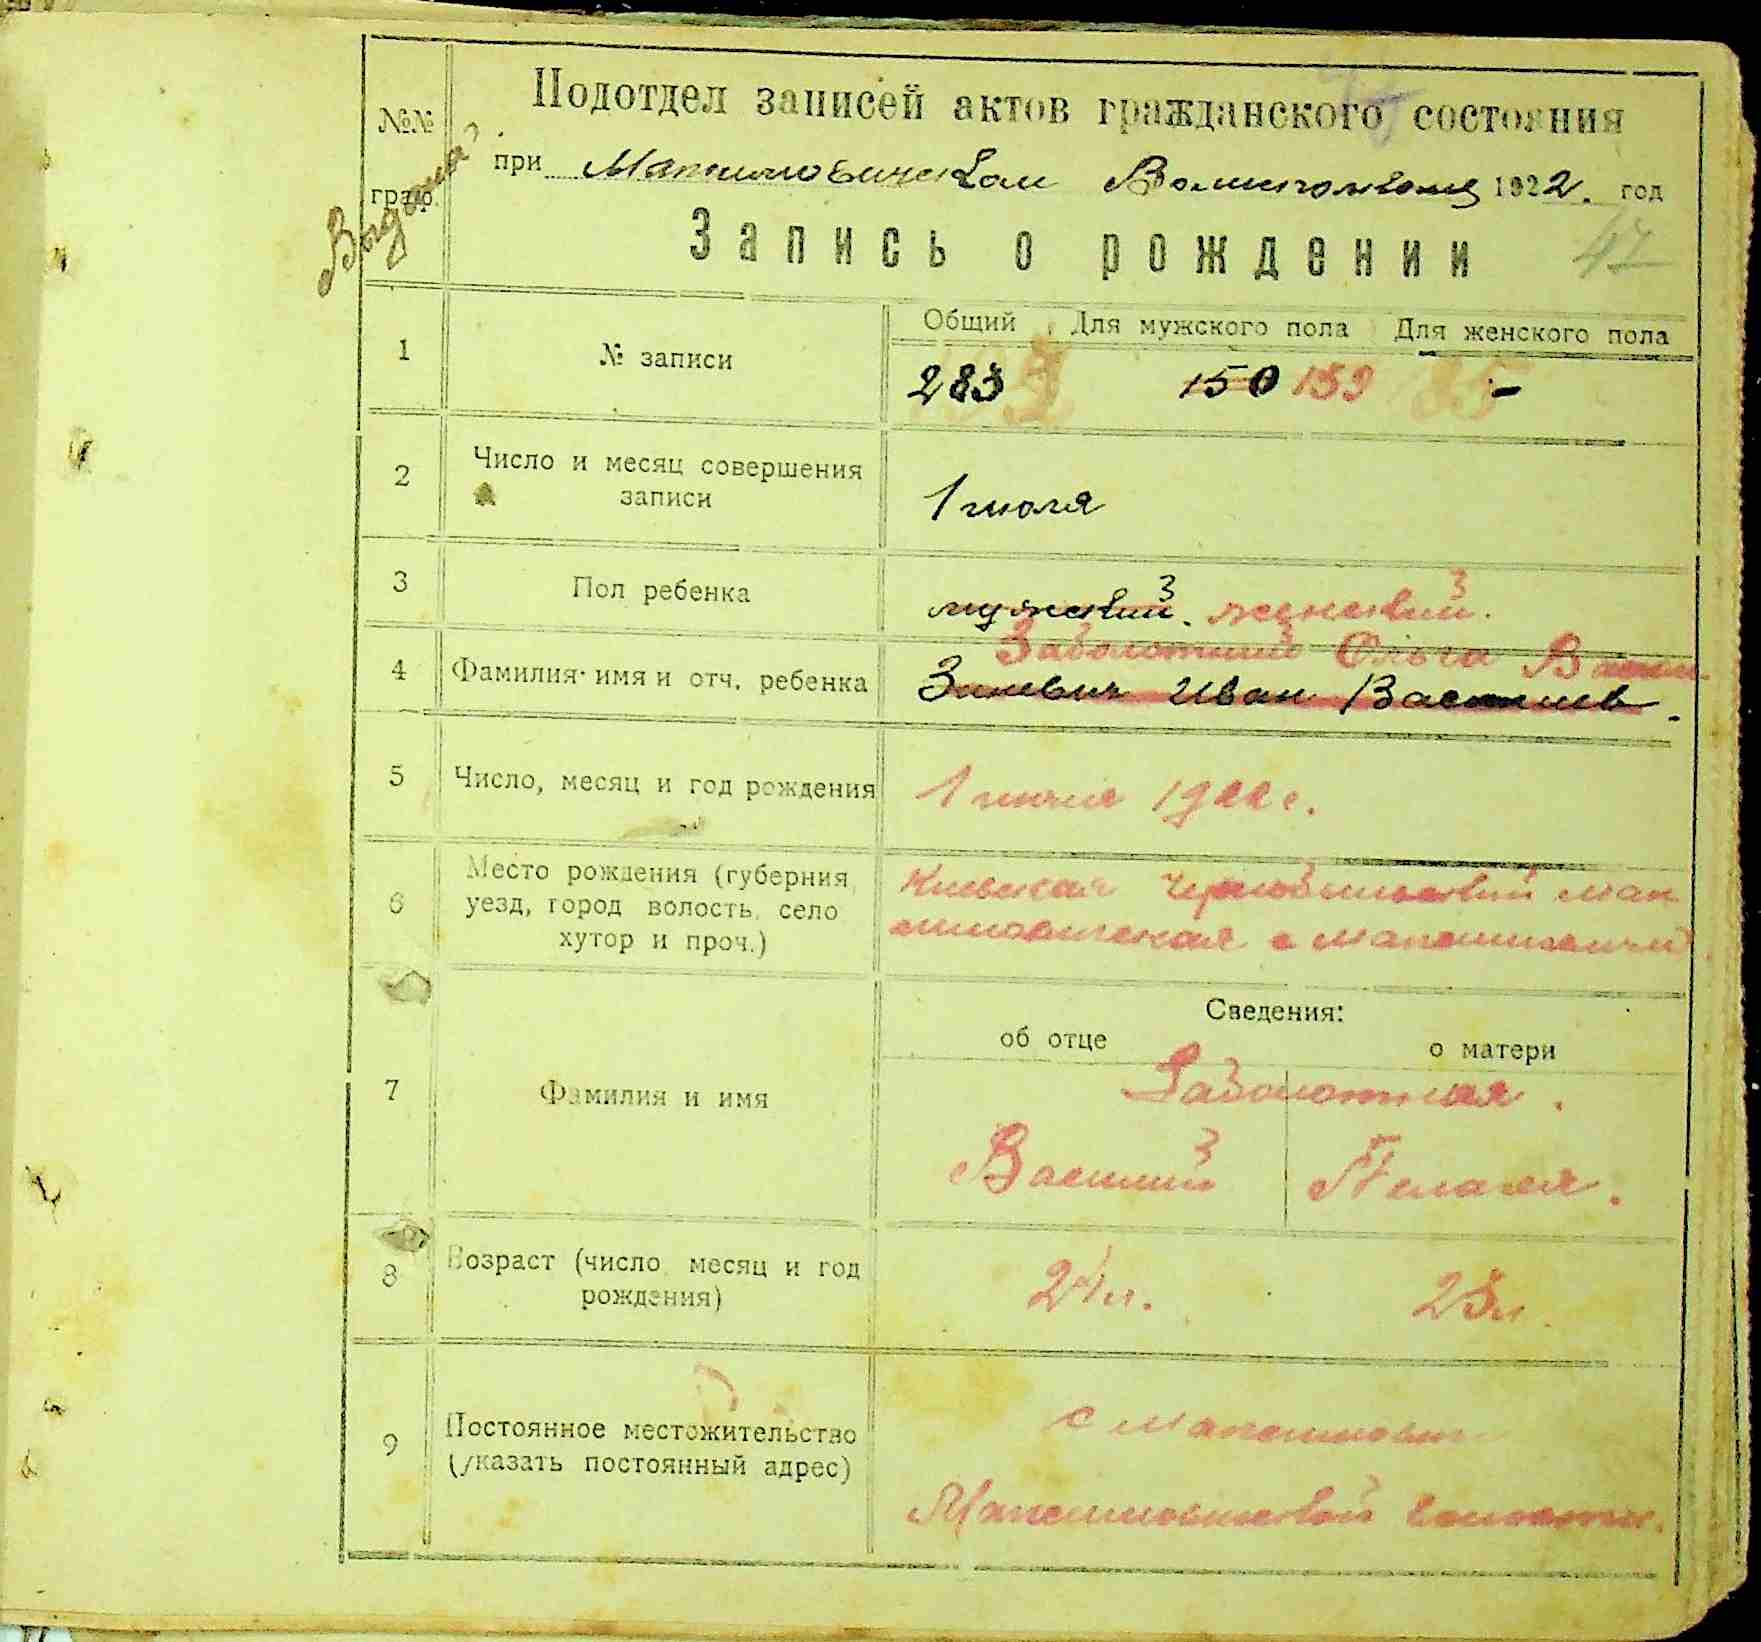 №№
граф.
Подотдел записей актов гражданского состояния
при 1922. год
Запись о рождении
47
Общий Для мужского пола Для женского пола
1 № записи 283 150 159 -
2 Число и месяц совершения
записи
1 июля
3 Пол ребенка мужский. женский.
Заболотный Ольга
4 Фамилия имя и отч. ребенка Зиневич Иван Васильев.
5 Число, месяц и год рождения 1 1922 г.
6 Место рождения (губерния,
уезд, город волость, село
хутор и проч.)
Киевская Чернобыльский Мак
симовичская с Максимовичи
Сведения:
об отце о матери
7 Фамилия и имя
Заболотная.
Василий Пелагея.
8 Возраст (число месяц и год
рождения)
24 л. 23 л.
9 Постоянное местожительство
(указать постоянный адрес)
с Максимович
Максимовичской волости.